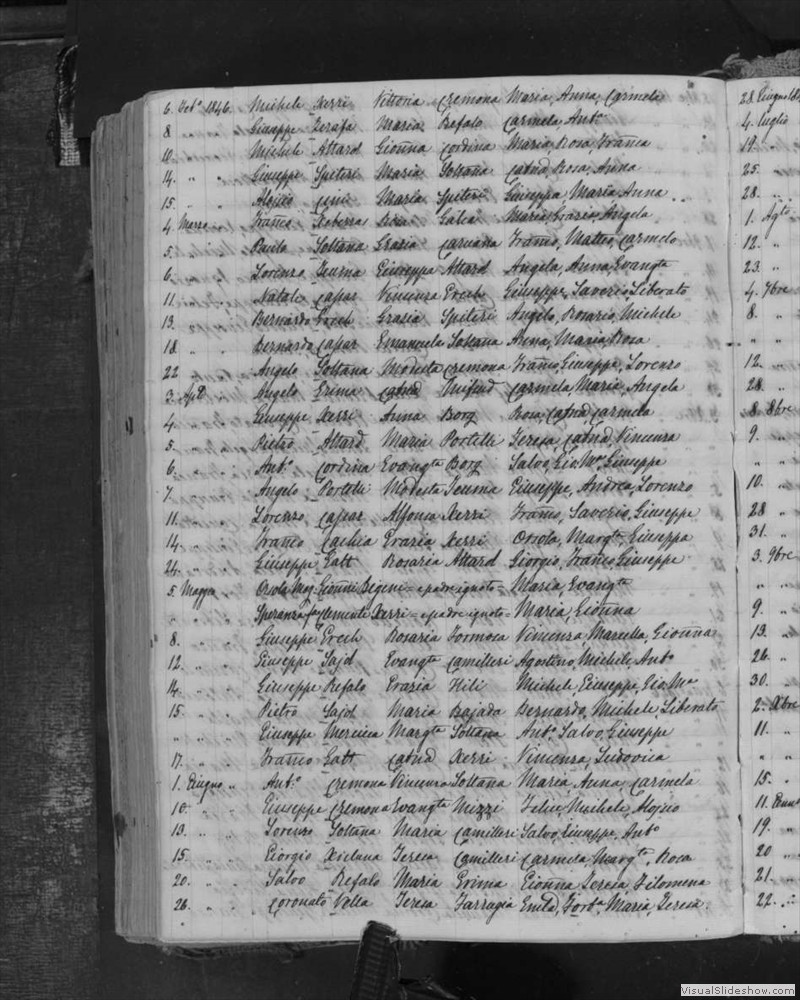 6. Feb.º 1846. Michele Xerri Vittoria Cremona Maria, Anna, Carmela
8 " " Giuseppe Zerafa Maria Refalo Carmela, Ant.º
10. " " Michele Attard Gioñna Cordina Maria, Rosa, Franca
14. " " Giuseppe Spiteri Maria Soltana Catnd, Rosa, Anna
15. " " Aloisio Cini Maria Spiteri Giuseppa, Maria, Anna
4. Marzo Franco Xuberras Rosa Galea Maria, Grazia, Angela
5. " " Paulo Soltana Grazia Caruana Franco, Matteo, Carmelo
6 " " Lorenzo Teuma Giuseppa Attard Angela, Anna, Evangta
11 " " Natale Capar Vincenza Grech Giuseppe, Saverio, Liberato
13. " " Bernardo Grech Grazia Spiteri Angelo, Rosario, Michele
18 " " Bernardo Capar Emanuela Soltana Anna, Maria, Rosa
22 " " Angelo Soltana Modesta Cremona Franco, Giuseppe, Lorenzo
3. Aple " Angelo Grima Catnd Mifsud Carmela, Maria, Angela
4. " " Giuseppe Xerri Anna Borg Rosa, Catnd, Carmela
5. " " Pietro Attard Maria Portelli Teresa, Catnd, Vincenza
6. " " Ant.º Cordina Evangta Borg Salvo, Gio Mª, Giuseppe
7 " " Angelo Portelli Modesta Teuma Giuseppe, Andrea, Lorenzo
11. " " Lorenzo Capar Alfonsa Xerri Franco, Saverio, Giuseppe
14. " " Franco Cachia Grazia Xerri Orsola, Margta, Giuseppa
24. " " Giuseppe Gatt Rosaria Attard Giorgio, Franco, Giuseppe
5. Maggio Orsola Gioñni Begeni = e padre ignoto = Maria, Evangta
" " Speranza fa Clemente Xerri = e padre ignoto = Maria, Gioñna
8. " " Giuseppe Grech Rosaria Formosa Vincenza, Marcella, Gioñna
12. " " Giuseppe Sajd Evangta Camilleri Agostino, Michele, Ant.º
14. " " Giuseppe Refalo Grazia Hili Michele, Giuseppe, Gio Mª
15. " " Pietro Sajd Maria Bajada Bernardo, Michele, Liberato
" " " Giuseppe Mercieca Margta Soltana Ant.º Salvo, Giuseppe
17. " " Franco Gatt Catnd Xerri Vincenza, Ludovica
1. Giugno " Ant.º Cremona Vincenza Soltana Maria, Anna, Carmela
10. " " Giuseppe Cremona Evangta Mizzi Felice, Michele, Aloisio
13. " " Lorenzo Soltana Maria Camilleri Salvo, Giuseppe, Ant.º
15. " " Giorgio Xicluna Teresa Camilleri Carmela, Margta, Rosa
20. " " Salvo Refalo Maria Grima Gioñna Teresa, Filomena
26. " " Coronato Vella Teresa Farrugia Maria, Teresa.
28. Giugno
4. Luglio
19. "
25. "
28. "
1. Agto
12. "
23. "
4. 7bre
8. "
" "
12. "
28. "
8. 8bre
9. "
" "
10. "
28 "
31. "
3. 9bre
" "
9. "
13. "
26. "
30. "
2. Xbre
11. "
" "
15. "
11.
19. "
20 "
21. "
22. "
VisualSlideshow.com